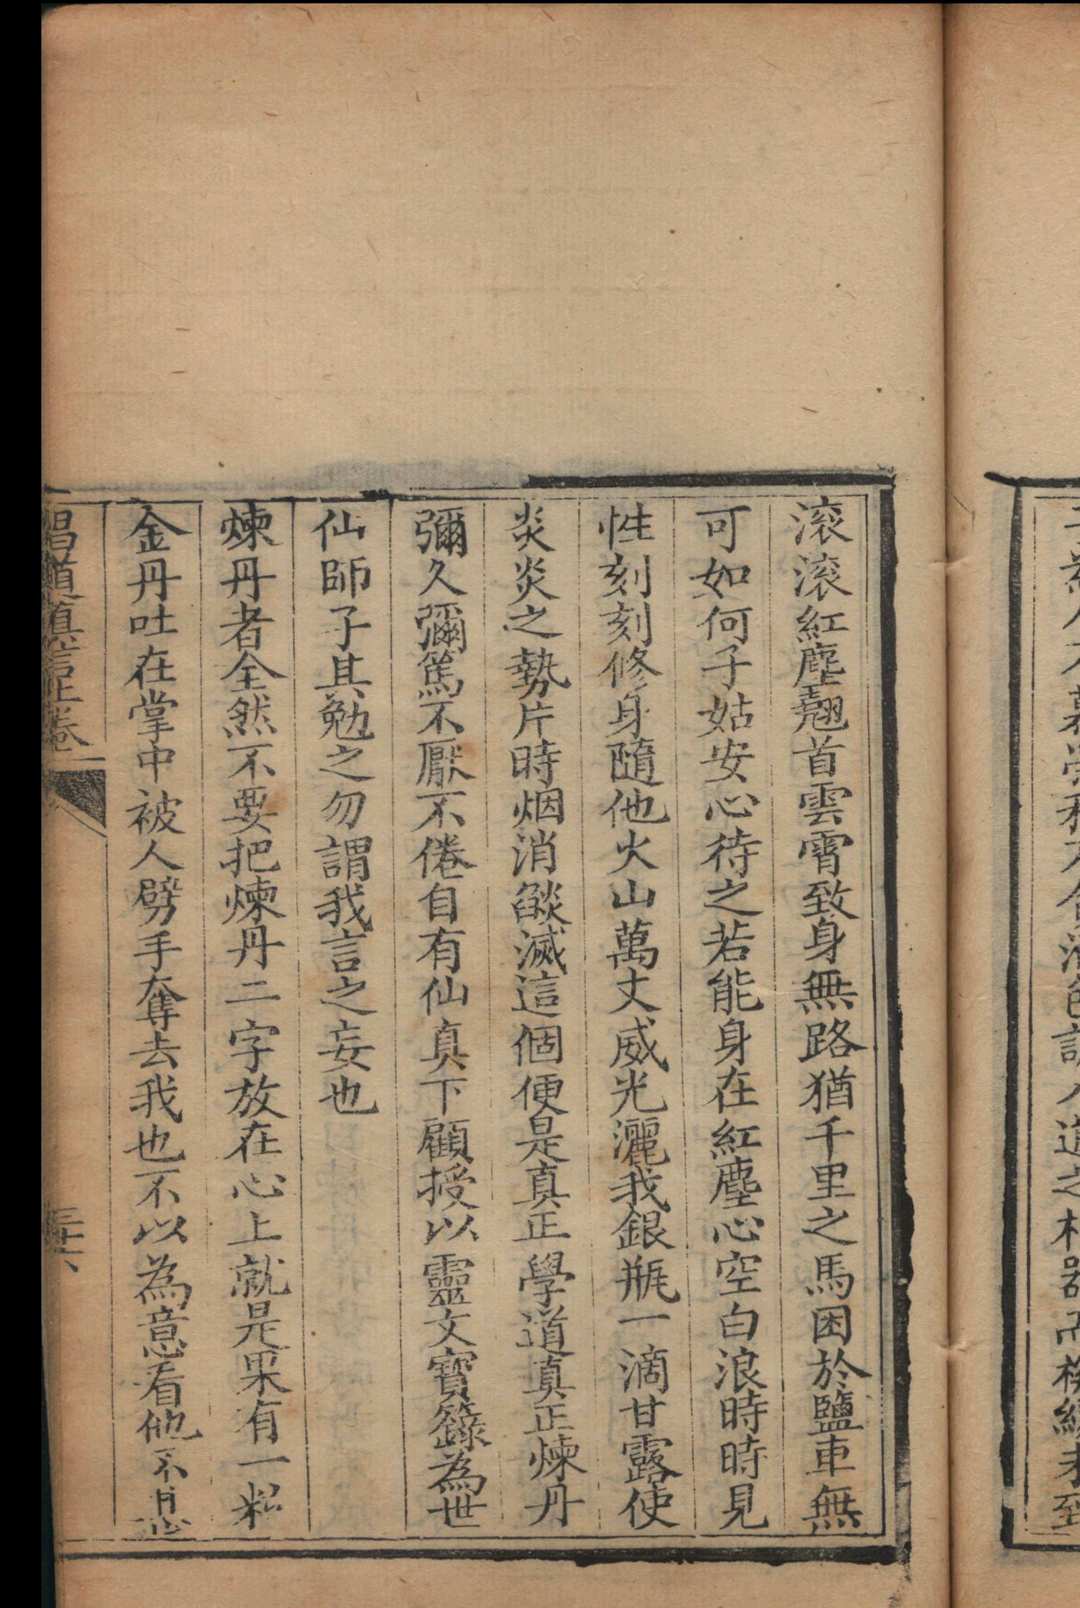 滚滚紅塵翹首雲霄致身無路猶千里之馬困於鹽車無
可如何子姑安心待之若能身在紅塵心空白浪時時見
性刻刻修身隨他火山萬丈威光灑我銀瓶一滴甘露使
炎炎之勢片時烟消燄滅這個便是真正學道真正煉丹
彌久彌篤不厭不倦自有仙真下顧授以靈文寶籙為世
仙師子其勉之勿謂我言之妄也
煉丹者全然不要把煉丹二字放在心上就是果有一粒
金丹吐在掌中被人劈手奪去我也不以為意看他不
唱道真言卷
三十六